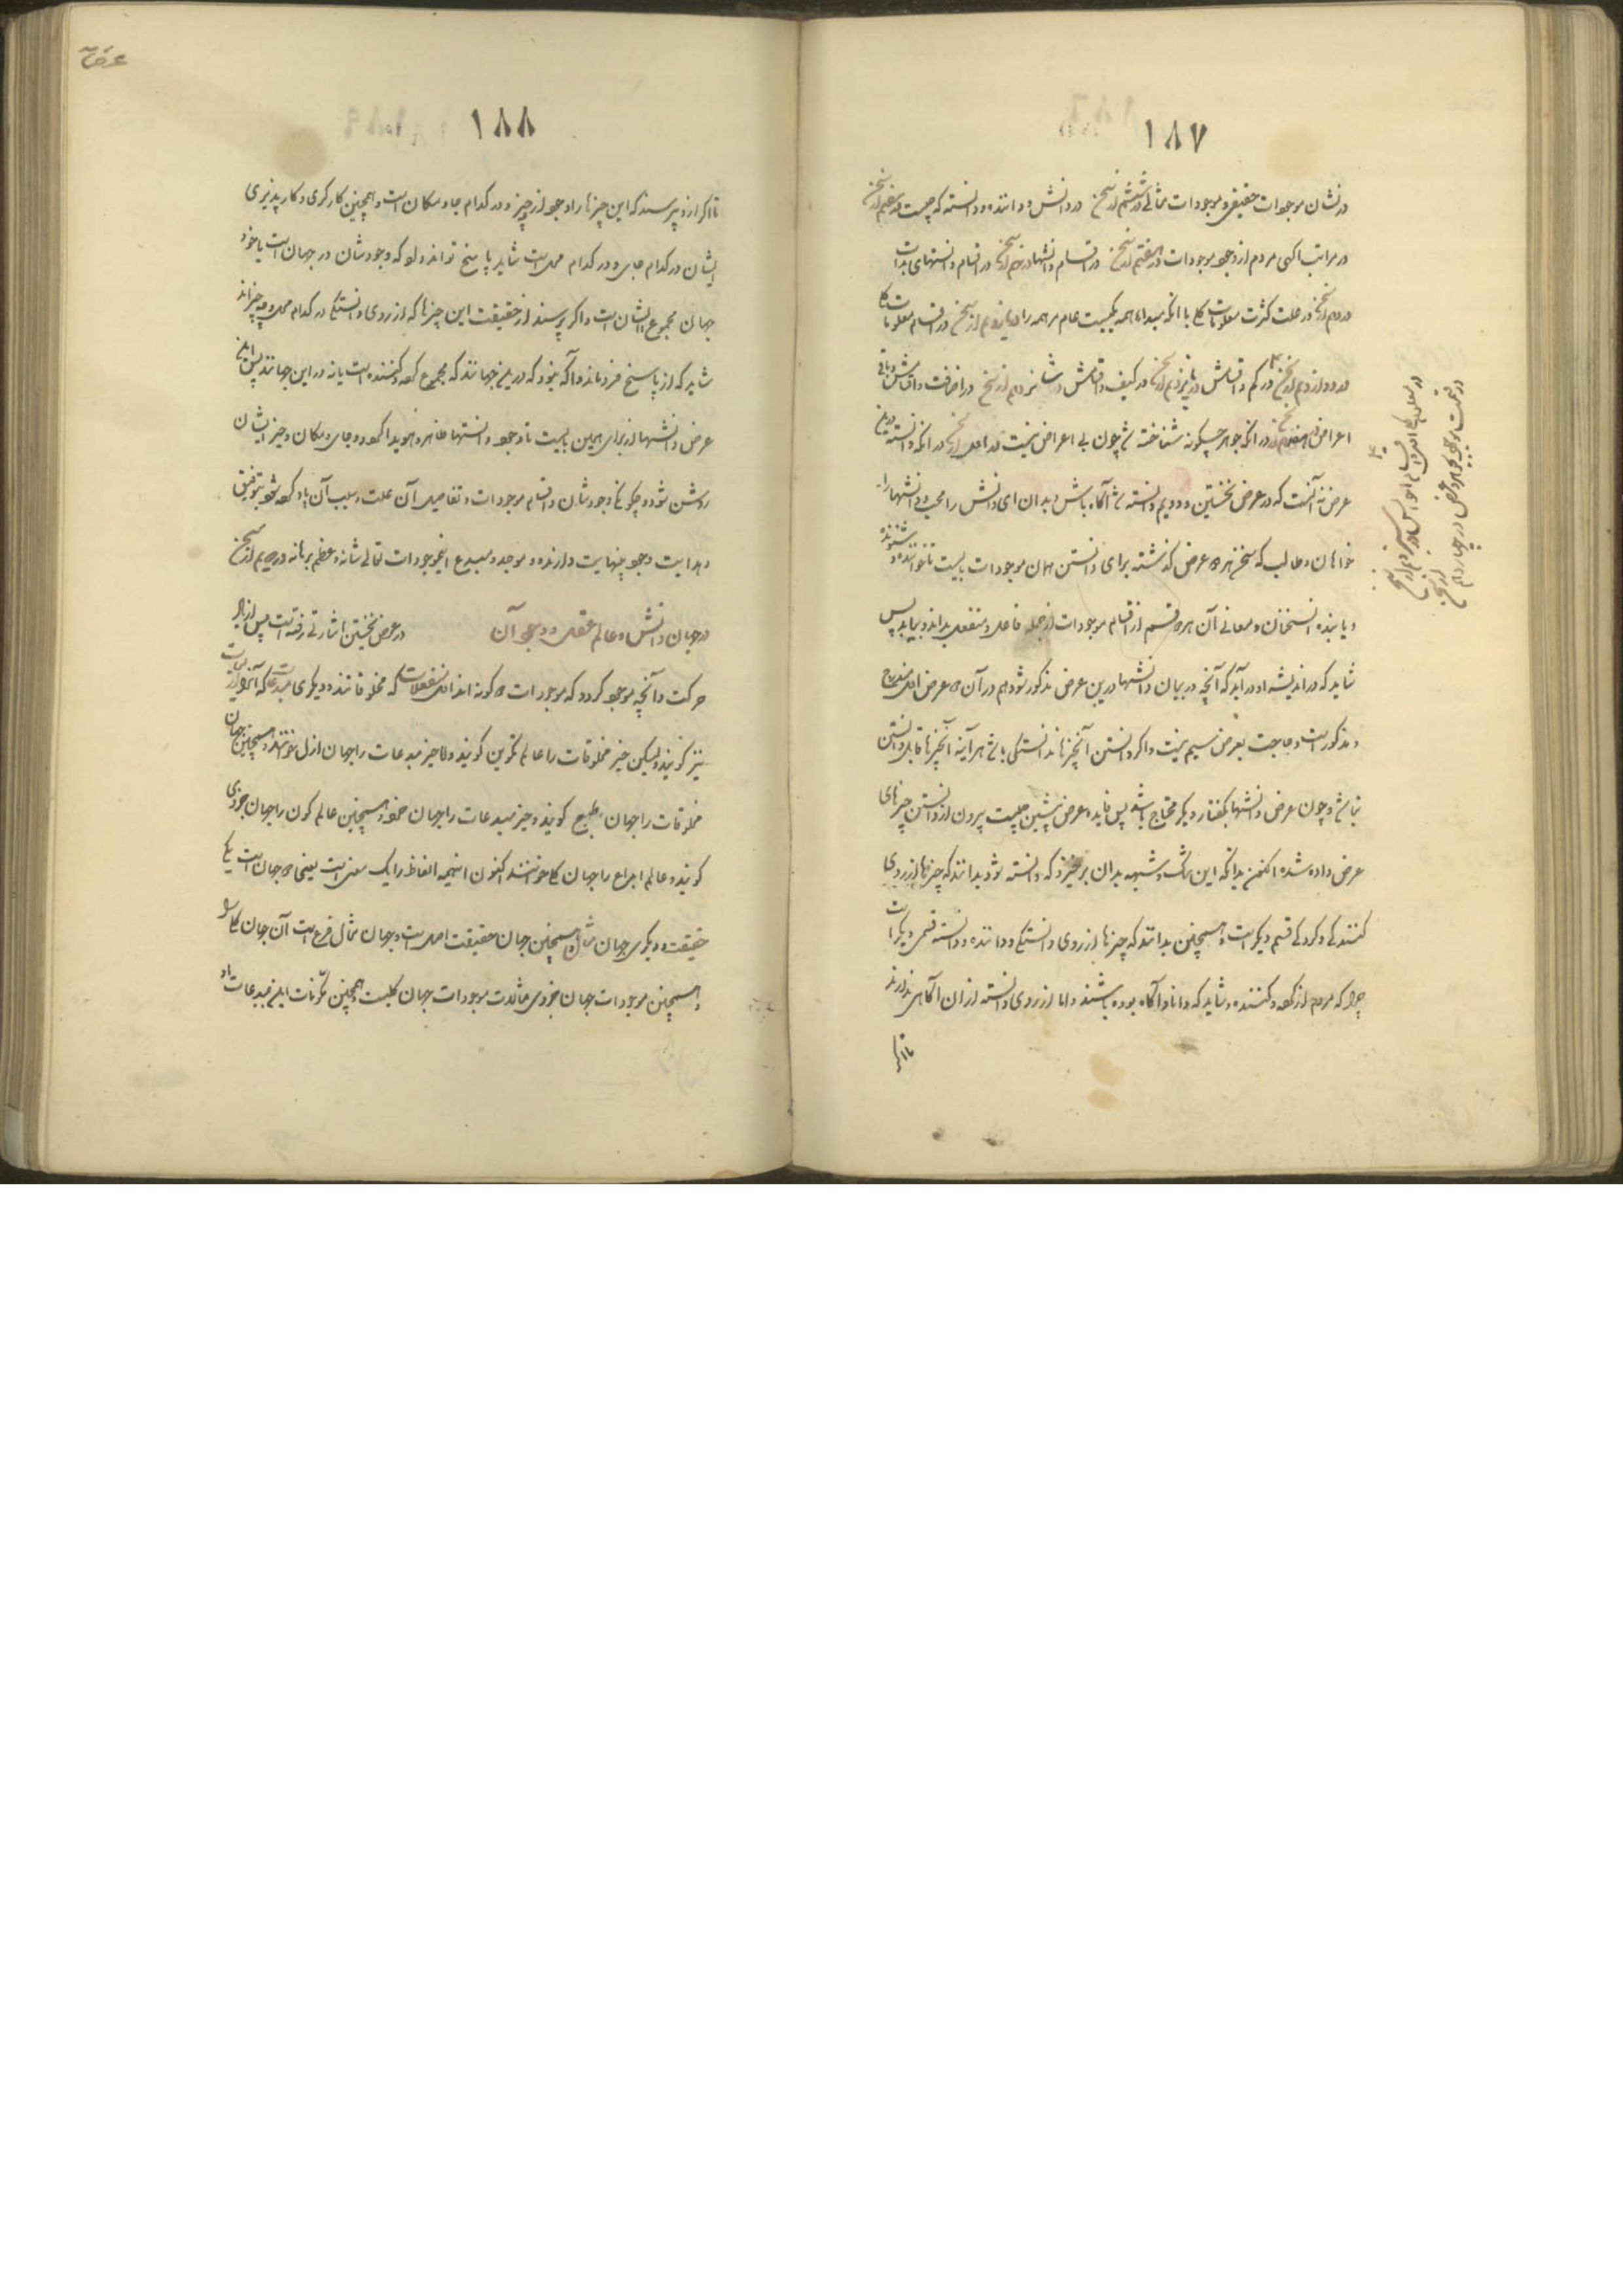 ۱۸۷
در نشان موجودات حقیقی و موجودات مثالی در ششم از سخن در دانش و داننده و دانسته که چیست در هفتم از سخن
در مراتب آگهی مردم از وجود موجودات در هشتم از سخن در اقسام دانشها در نهم از سخن در اقسام دانستهای بذات
در دهم از سخن در علت کثرت معلومات کلی با آنکه مبدا همه یکیست عام مر همه را در یازدهم از سخن در اقسام معلومات کلی
در دوازدهم از سخن در کم و اقسامش در پانزدهم از سخن در کیف و اقسامش در شانزدهم از سخن در اضافت و اقسامش و باقی
اعراض در هفدهم از سخن در آنکه جوهر چگونه شناخته شود چون بی اعراض نیست در اول از سخن در آنکه دانسته درین
عرض نه آنست که در عرض نخستین و دویم دانسته شد آگاه باش و بدان ای دانش را محب و دانشها را
خواهان و طالب که سخن هر دو عرض گذشته برای دانستن همان موجودات بیست تا خواننده و شنونده
و یابنده آن سخنان و معانی آن هر دو قسم از اقسام موجودات از جمله فاعل و منفعل بداند و بیابد پس
شاید که در اندیشه او در آید که آنچه در بیان دانشها درین عرض مذکور شود هم در آن دو عرض اول مندرج
و مذکور است و حاجت بعرض سیم نیست و اگر دانستن آنچیزها نه دانستگی باشد هرآینه آنچیزها قابل دانستن
نباشد و چون عرض دانشها بگفتار دیگر محتاج باشد پس فایده عرض پیشین چیست بیرون از دانستن چیزهای
عرض داده شده اکنون بدانکه این شک و شبهه بدان برخیزد که دانسته شود بدانند که چیزها از روی
کنندگی و کردگی قسم دیگر است و همچنین بدانند که چیزها از روی دانستگی و داننده و دانسته قسمی دیگر است
چرا که مردم از کرده و کننده شاید که دانا و آگاه بوده باشند و اما از روی دانسته از آن آگاهی ندارند
تا اگر
در قسمت موجود بجوهر و عرض در چهاردهم از سخن
۱۸۸
تا اگر از او پرسند که این چیزها را وجود از چه چیز و در کدام جا و مکان است و همچنین کارگری و کارپذیری
ایشان در کدام جای و در کدام محل است شاید پاسخ تواند داد که وجودشان در جهان است یا خود
جهان مجموع ایشان است و اگر پرسند از حقیقت این چیزها که از روی دانستگی در کدام محل و چه چیزاند
شاید که از پاسخ فرو ماند و آگه نبود که در این جهانند که مجموع کرده و کننده است یا نه در این جهانند پس این
عرض دانشها از برای همین بایست تا وجود دانستها ظاهر و هویدا گردد و جای و مکان و حیز ایشان
روشن شود و چگونگی وجودشان و اقسام موجودات و تفاصیل آن علت و سبب آن یاد کرده شود بتوفیق
و هدایت وجود بینهایت دارنده و موجد و مبدع این موجودات تعالی شانه و عظم برهانه در دویم از سخن
در جهان دانش و عالم عقل و وجود آن در عرض نخستین اشارتی رفته است پس از بیان
حرکت و آنچه موجود گردد که موجودات دو گونه اند اول منفعلات که مخلوقاتند و دیگری مبدعات که آنرا ازلیات
نیز گویند ولیکن حیز مخلوقات را عالم تکوین گویند و اما حیز مبدعات را جهان ازل خوانند و همچنین جهان
مخلوقات را جهان طبع گویند و حیز مبدعات را جهان خرد و همچنین عالم کون را جهان جزوی
گویند و عالم ابداع را جهان کلی خوانند اکنون اینهمه الفاظ را یک معنی است یعنی دو جهان است یکی
حقیقت و دیگری جهان مثال و همچنین جهان حقیقت اصل است و جهان مثال فرع است آن جهان کلی را
و همچنین موجودات جهان جزوی مثالات موجودات جهان کلیست و همچنین مکونات این مبدعات او